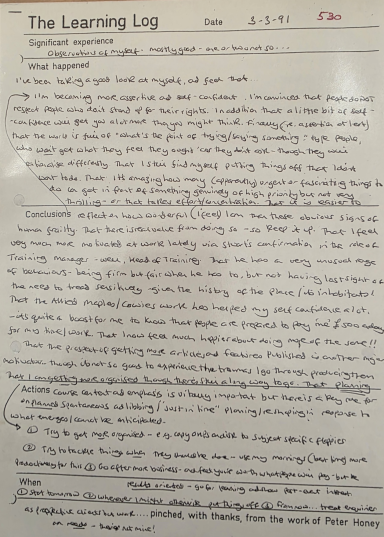 The Learning Log Date 3-3-91 530
Significant experience
Observation of myself - mostly good - one or two not so...
What happened
I've been taking a good look at myself, and feel that
I'm becoming more assertive and self-confident. I'm convinced that people don't
respect people who don't stand up for their rights. In addition that a little bit of self-
-confidence will get you a lot more than you might think. Finally (i.e. assertion at least)
that the world is full of "what's the point of trying/saying something" type people,
who want get what they feel they ought 'cos they don't ask - though they would
rationalise differently. That I still find myself putting things off that I don't
want to do. That it's amazing how many (apparently) urgent or fascinating things to
do can get in front of something genuinely of high priority but not very
thrilling - or that takes effort/concentration. That it is easier to
Conclusions reflect on how wonderful (I feel) I am than these obvious signs of
human frailty. That there is real value from doing so - so keep it up. That I feel
very much more motivated at work lately via confirmation in the role of
Training manager - well, Head of Training. That he has a very unusual range
of behaviours - being firm but fair when he has to, but not having lost sight of
the need to tread sensitively given the history of the place/its inhabitants!
That the Allied work has helped my self confidence a lot.
- it's quite a boost for me to know that people are prepared to pay me £500 a day
for my time/work. That I now feel much happier about doing more of the same!!
That the prospect of getting more articles and features published is another
motivator - though do not so good to experience the traumas I go through producing them
That I am getting more organised though there's still a long way to go. That planning
Actions course content and emphasis is vitally important but there's a key for
unplanned spontaneous ad libbing/"just in time" planning/reshaping in response to
what emerges/cannot be anticipated.
① Try to get more organised - e.g. copy to subject specific
② Try to tackle things when they should be done - use my mornings (best time) more
productively for this ③ Go after more business - and feel you're worth what people will pay - but be
When results oriented - go for
① start tomorrow ② whenever I might otherwise put things off ③ from now... treat enquiries
as prospective clients but work .....pinched, with thanks, from the work of Peter Honey
on needs - theirs not mine!